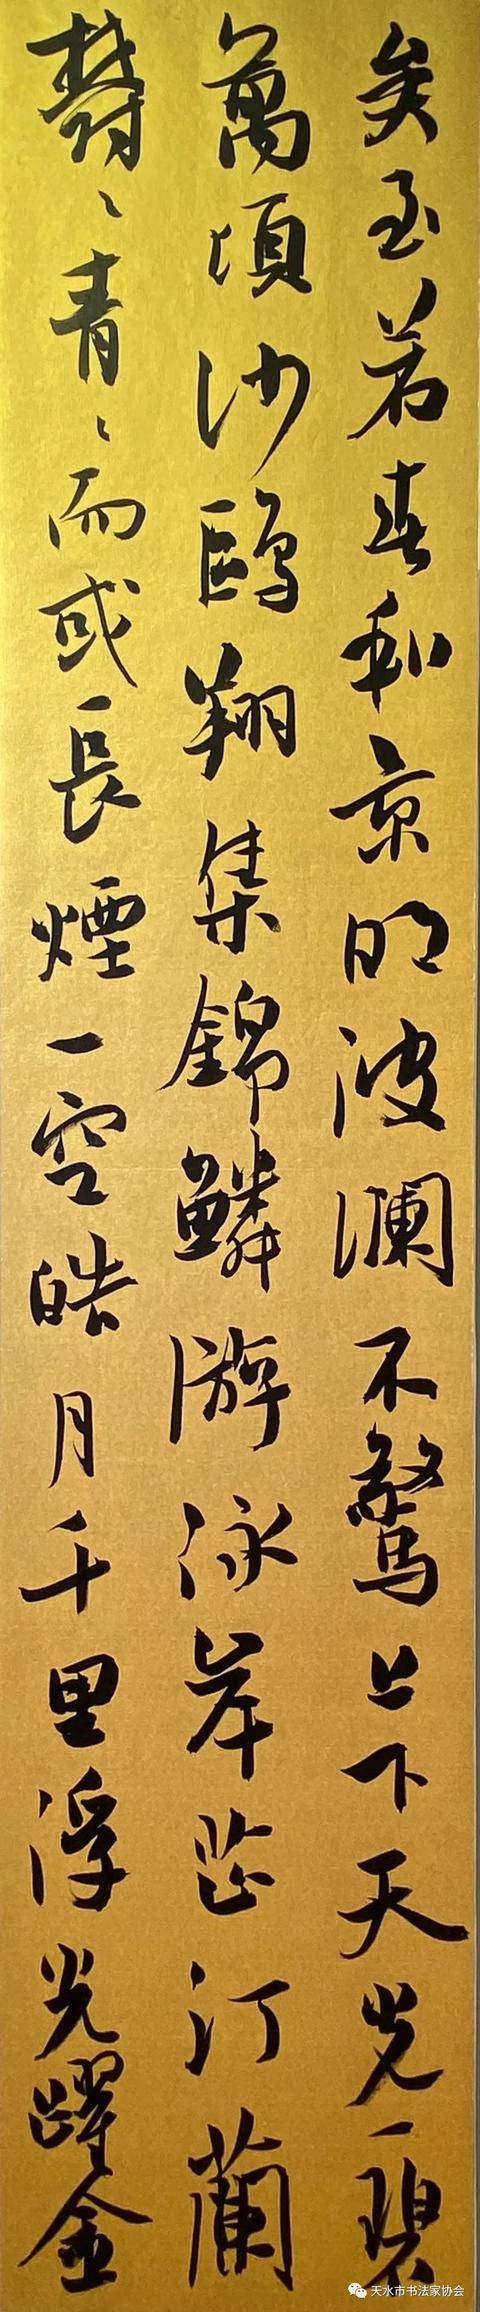 矣至若春和景明波澜不驚上下天光一碧
萬頃沙鷗翔集錦鱗游泳岸芷汀蘭
欝〻青〻而或長煙一空皓月千里浮光躍金
天水市书法家协会